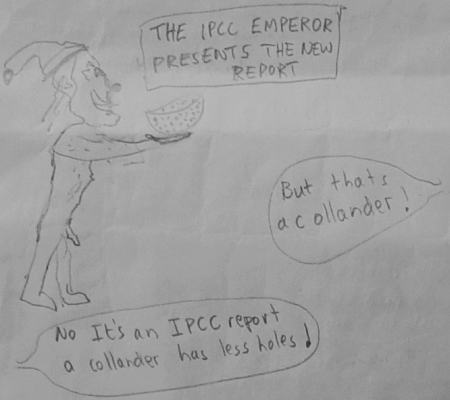 THE IPCC EMPEROR
PRESENTS THE NEW
REPORT
But thats
a collander!
No It's an IPCC report
a collander has less holes!